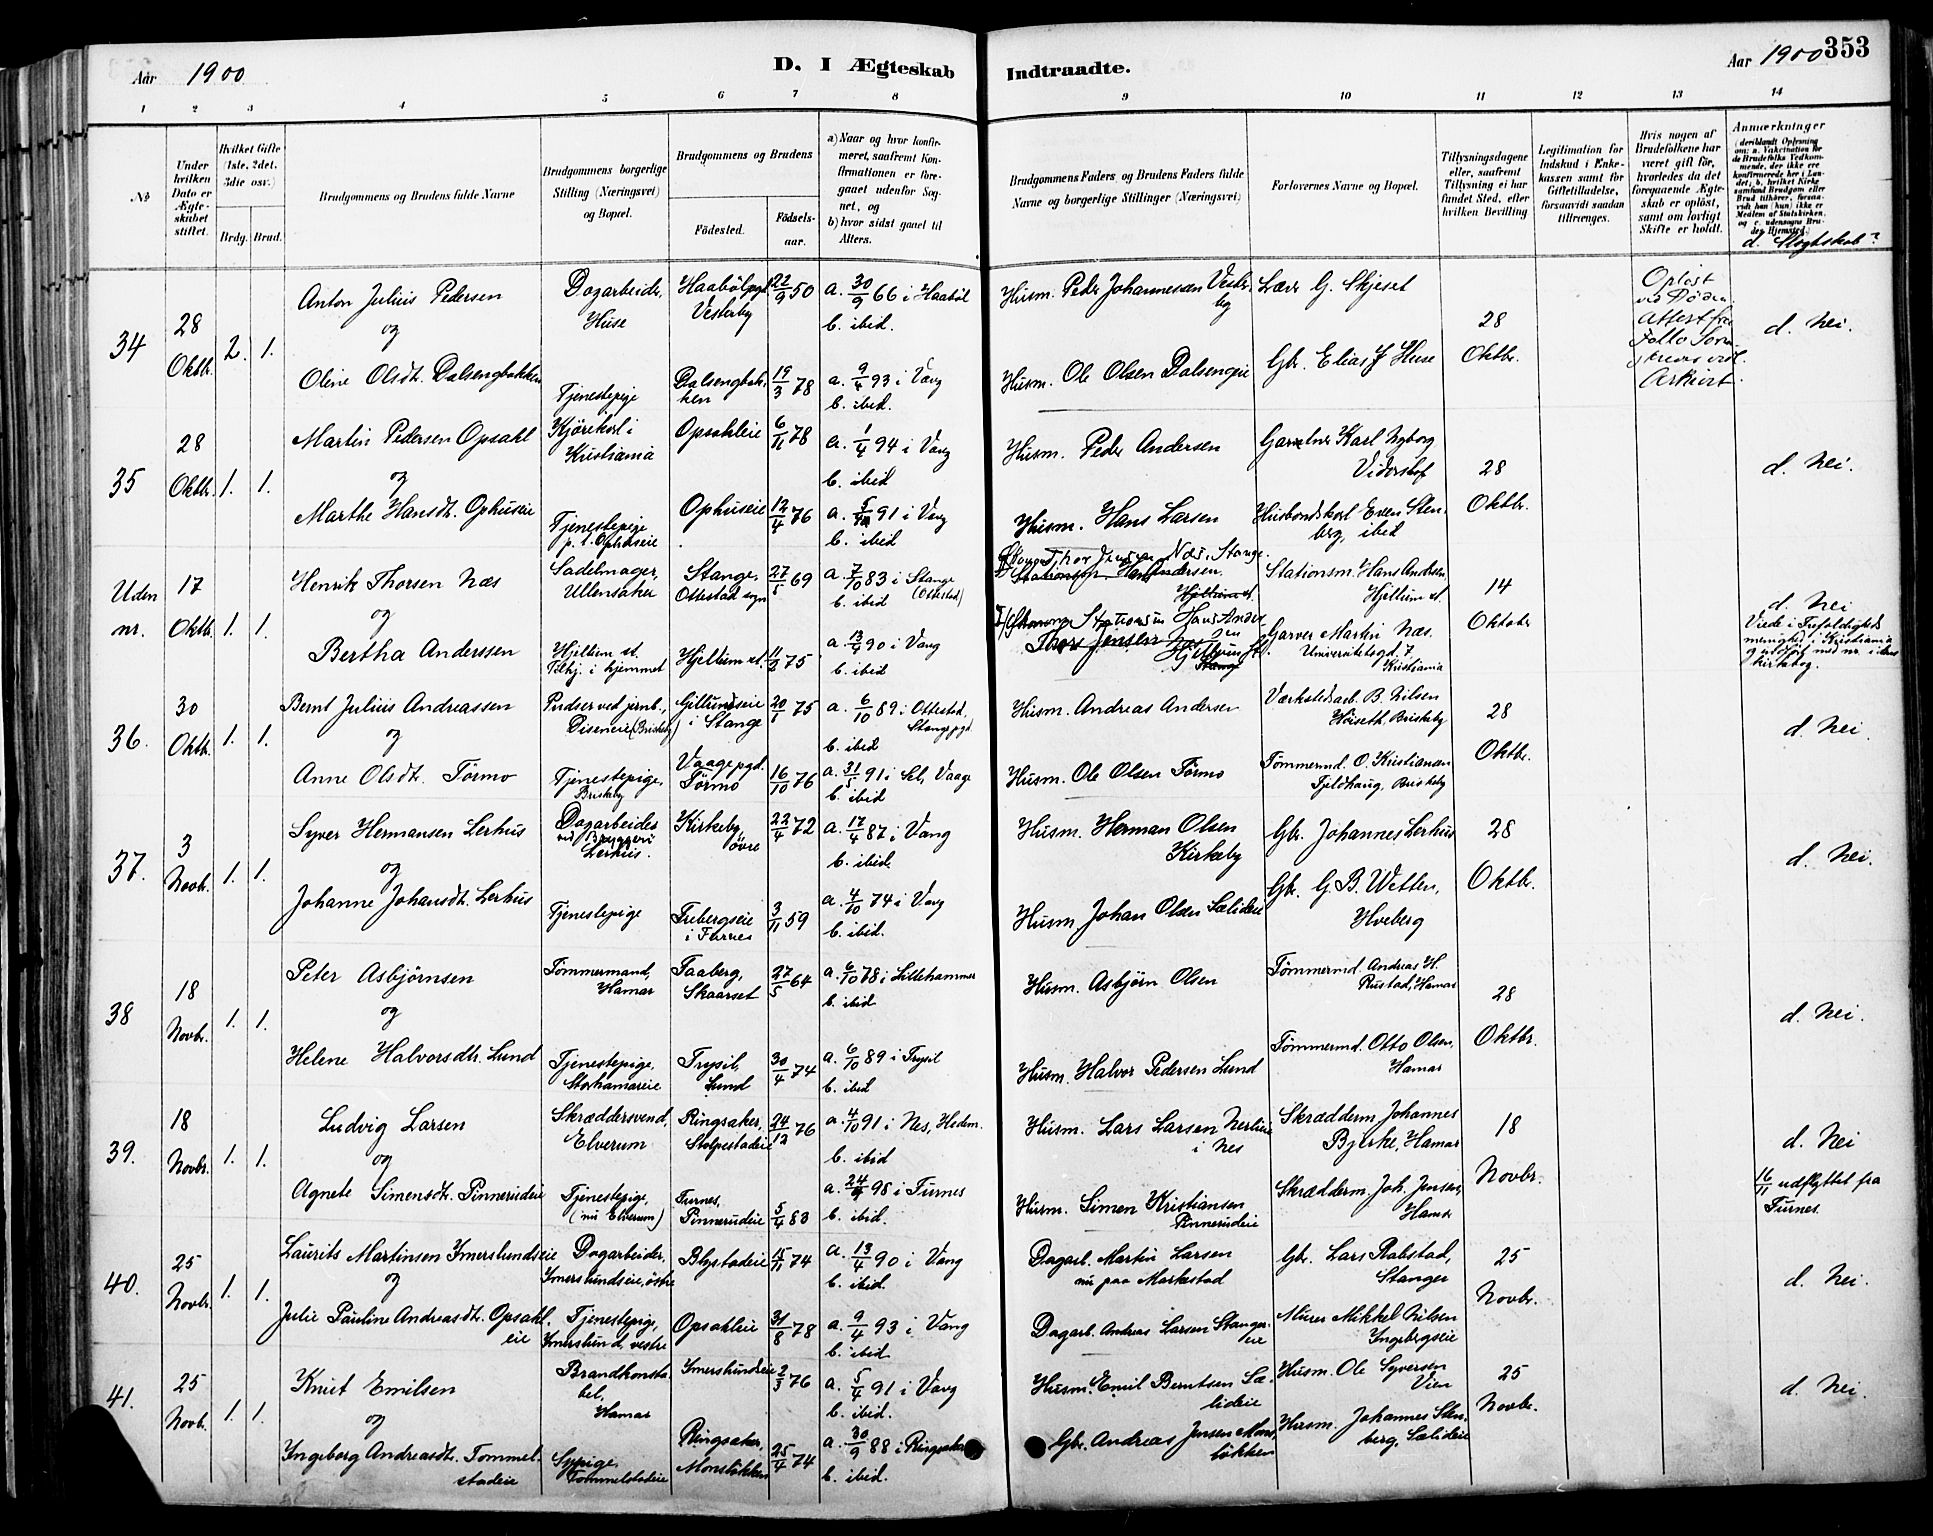 Aar 1900
D. I Ægteskab
Indtraadte.
Aar 1900
353
1 2 3 4 5 6 7 8 9 10 11 12 13 14
No
Under hvilken Dato er Ægteskabet stiftet.
Hvilket Gifte (1ste, 2det, 3die osv.)
Brdg. Brud.
Brudgommens og Brudens fulde Navne
Brudgommens borgerlige Stilling (Næringsvei) og Bopæl.
Brudgommens og Brudens
Födested.
Födsels-aar.
a) Naar og hvor konfirmeret, saafremt Konfirmationen er foregaaet udenfor Sognet, og
b) hvor sidst gaaet til Alters.
Brudgommens Faders og Brudens Faders fulde Navne og borgerlige Stillinger (Næringsvei)
Forlovernes Navne og Bopæl.
Tillysningsdagene eller, saafremt Tillysning ei har fundet Sted, efter hvilken Bevilling
Legitimation for Indskud i Enkekassen samt for Giftetilladelse, forsaavidt saadan tiltrænges.
Hvis nogen af Brudefolkene har været gift för, hvorledes da det foregaaende Ægteskab er oplöst, samt om lovligt Skifte er holdt.
Anmærkninger
d. Slægtskab?
34
28 Oktbr. 2. 1.
Anton Julius Pedersen
og
Oline Olsdt. Dalsengbakken
Dagarbeider, Huse
Tjenestepige
Haabölpgd Vesterby 22/9 50
Dalsengbakken 19/3 78
a. 30/9 66 i Haaböl
b. ibid.
a. 9/4 93 i Vang
b. ibid.
Husm. Peder Johannesen Vesterby
Husm. Ole Olsen Dalsengeie
Lærer G. Skjeset
Gbr. Elias J. Huse
28 Oktbr.
Oplöst ved Döden. Attest fra
Arkivet.
d. Nei.
35
28 Oktbr. 1. 1.
Martin Pedersen Opsahl
og
Marthe Hansdt. Ophuseie
Kjörekarl i Kristiania
Tjenestepige p. t. Ophuseie
Opsahleie 6/11 78
Ophuseie 12/4 76
a. 1/4 94 i Vang
b. ibid
a. 91 i Vang
b. ibid
Husm. Peder Andersen
Husm. Hans Larsen
Gartner Karl Nyborg Vidarshof
Husbondskarl Even Stenberg, ibid
28 Oktbr.
d. Nei.
Uden nr.
17 Oktbr. 1. 1.
Henrik Thorsen Næs
og
Bertha Anderssen
Sadelmager, Ullensaker
Hjellum st. Tilhj. i hjemmet
Stange, Ottestad sogn 27/5 69
Hjellum st. 11/2 75
a. 7/10 83 i Stange (Ottestad)
b. ibid
a. 13/4 90 i Vang
b. ibid
Thor Jensen Næs, Stange.
Stationsm. Hans Andersen, Hjellum st.
Stationsm Hans Andersen Hjellum st.
Thor Jensen Næs Stange
Stationsm. Hans Andersen, Hjellum st.
Garver Martin Næs. Universitetsgd. 7 Kristiania
14 Oktober
d. Nei
Viede i Trefoldigheds menighed i Kristiania
kirkebog.
36.
30 Oktb. 1. 1.
Bernt Julius Andreassen
og
Anne Olsdt. Törmo
Pudser ved jernb., Diseneie (Briskeby)
Tjenestepige, Briskeby
Gillundseie i Stange 20/1 75
Vaage pgd. Törmo 16/10 76
a. 6/10 89 i Ottestad, Stange pgd.
b. ibid
a. 31/5 91 i Sel, Vaage
b. ibid
Husm. Andreas Andersen
Husm. Ole Olsen Törmo
Værkstedsarb. B. Nilsen Höiseth, Briskeby
Tömmermd. O. Kristiansen Fjeldhaug, Briskeby
28 Oktbr.
d. Nei.
37.
3 Novbr. 1. 1.
Syver Hermansen Lerhus
og
Johanne Johansdt. Lerhus
Dagarbeider ved Bryggeri Lerhus.
Tjenestepige
Kirkeby, övre 22/4 72
Frebergseie i Furnes 3/11 59
a. 17/4 87 i Vang
b. ibid.
a. 4/10 74 i Vang
b. ibid.
Husm. Herman Olsen Kirkeby
Husm Johan Olsen Sælideie
Gbr. Johannes Lerhus
Gbr. G. B. Wetten, Hveberg
28 Oktbr.
d. Nei.
38
18 Novbr. 1. 1.
Peter Asbjörnsen
og
Helene Halvorsdtr. Lund
Tömmermand, Hamar
Tjenestepige, Storhamareie
Faaberg, Skaarset 27/5 64
Trysil, Lund 30/4 74
a. 6/10 78 i Lillehammer
b. ibid
a. 6/10 89 i Trysil
b. ibid
Husm. Asbjörn Olsen
Husm. Halvor Pedersen Lund
Tömmermd. Andreas H. Rustad, Hamar
Tömmermd. Otto Olsen, Hamar
28 Oktbr.
d. Nei.
39.
18 Novbr. 1. 1.
Ludvig Larsen
og
Agnete Simensdt. Pinnerudeie
Skræddersvend, Elverum
Tjenestepige, (nu Elverum)
Ringsaker, Stolpestadeie 24/12 76
Furnes, Pinnerudeie 5/4 83
a. 4/10 91 i Nes, Hedem.
b. ibid
a. 98 i Furnes
b. ibid.
Husm. Lars Larsen Nerlieie i Nes
Husm. Simen Kristiansen Pinnerudeie
Skrædderm. Johannes Bjerke, Hamar
Skrædderm. Joh. Jensen, Hamar
18 Novbr.
d. Nei
16/11 udflyttet fra Furnes.
40.
25 Novbr. 1. 1.
Laurits Martinsen Imerslundseie
og
Julie Pauline Andreasdt. Opsahleie
Dagarbeider, Imerslundseie, östre
Tjenestepige, Imerslund, vestre
Blystadeie 15/11 74
Opsahleie 31/8 78
a. 13/4 90 i Vang
b. ibid.
a. 9/4 93 i Vang
b. ibid
Dagarb. Martin Larsen nu paa Markestad
Dagarb. Andreas Larsen Stangereie
Gbr. Lars Rabstad, Stanger
Murer Mikkel Nilsen Ingebergseie
25 Novbr.
d. Nei.
41.
25 Novb. 1. 1.
Knut Emilsen
og
Ingeborg Andreasdt. Tommelstadeie
Brandkonstabel, Hamar
Sypige, Tommelstadeie
Imerslundseie 2/3 76
Ringsaker, Monslökken 25/4 74
a. 5/4 91 i Vang
b. ibid.
a. 30/9 88 i Ringsaker
b. ibid.
Husm. Emil Berntsen Sælideie
Gbr. Andreas Jensen Monslökken
Husm. Ole Syversen Vien
Husm. Johannes Stenberg, Sælideie
25 Novbr.
d. Nei.